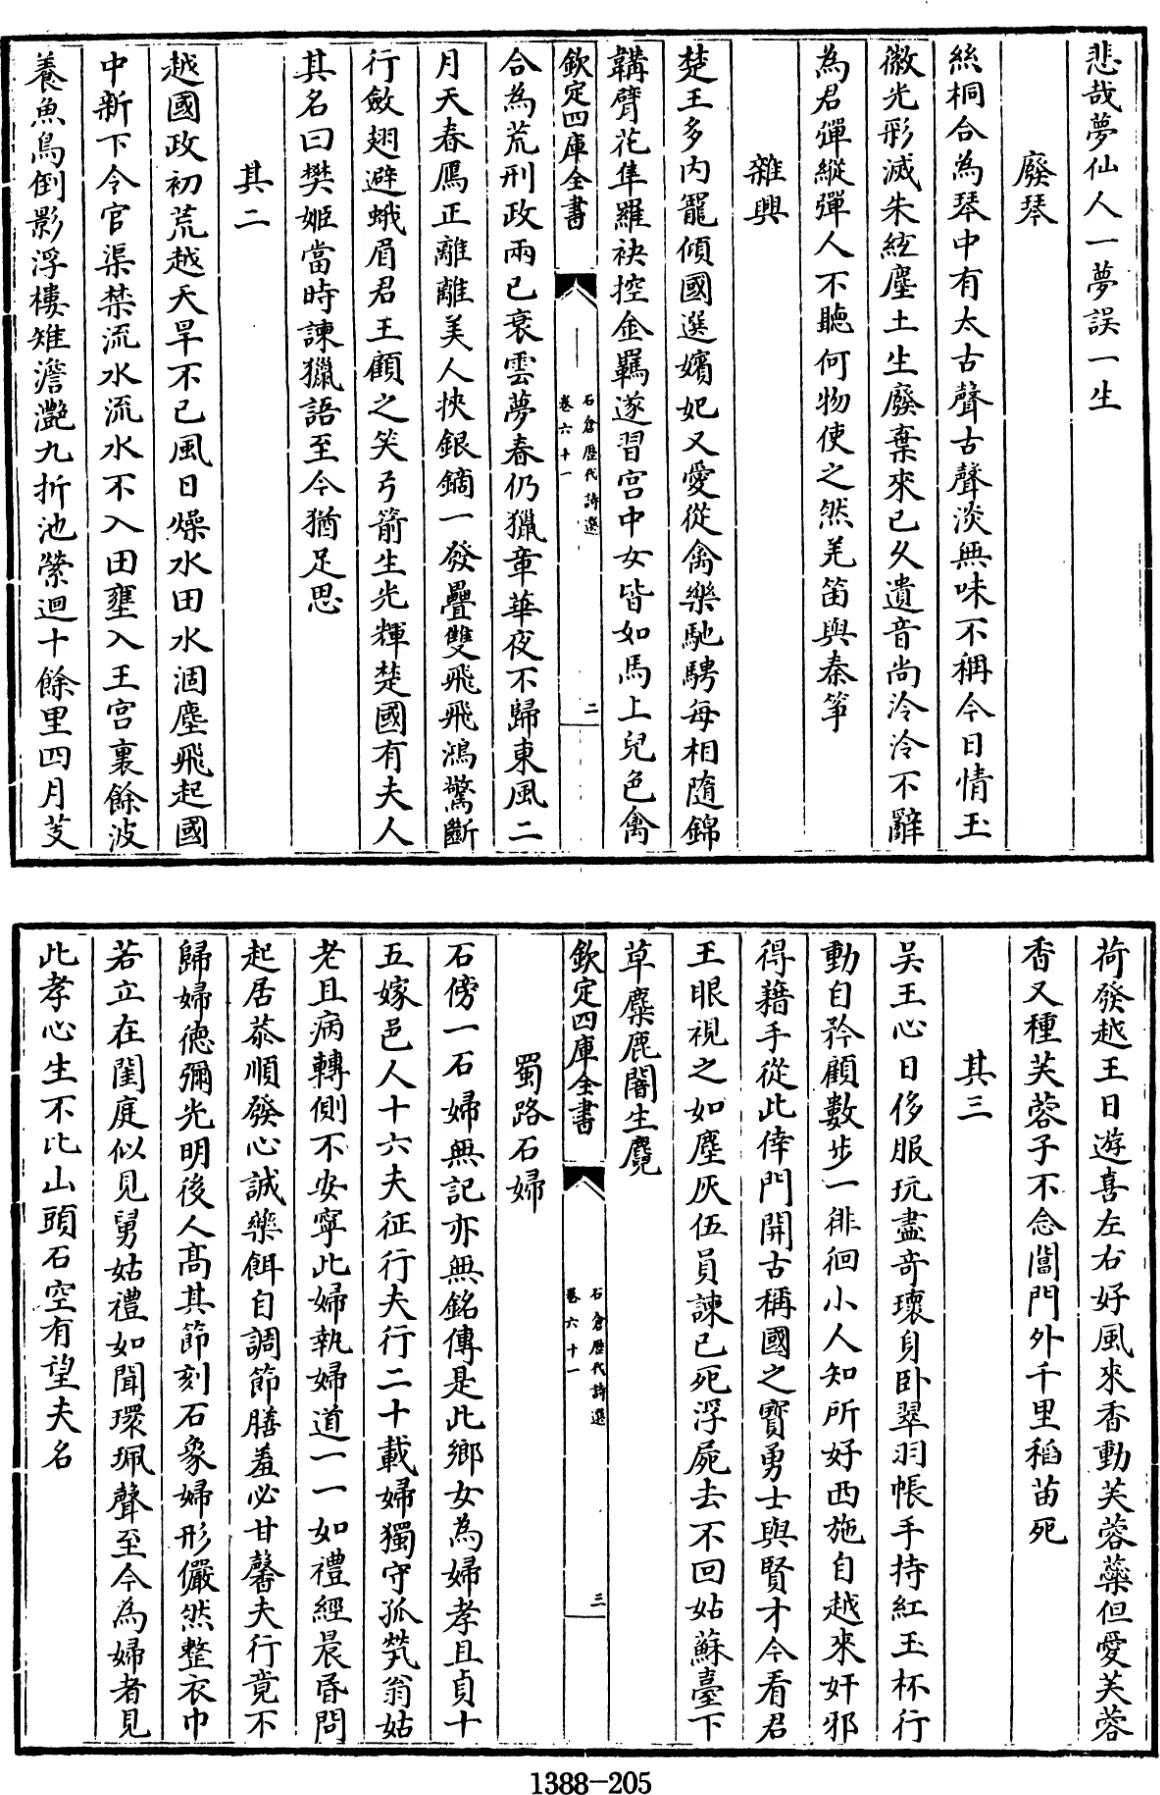 悲哉夢仙人一夢誤一生
廢琴
絲桐合為琴中有太古聲古聲淡無味不稱今日情玉
徽光彩滅朱絃塵土生廢棄來已久遺音尚泠泠不辭
為君彈縱彈人不聽何物使之然羌笛與秦箏
雜興
楚王多内寵傾國選嬪妃又愛從禽樂馳騁每相隨錦
韝臂花隼羅袂控金羈遂習宫中女皆如馬上兒色禽
欽定四庫全書
石倉歷代詩選
卷六十一
二
合為荒刑政兩已衰雲夢春仍獵章華夜不歸東風二
月天春鴈正離離美人挾銀鏑一發疊雙飛飛鴻驚斷
行斂翅避蛾眉君王顧之笑弓箭生光輝楚國有夫人
其名曰樊姬當時諫獵語至今猶足思
其二
越國政初荒越天旱不已風日燥水田水涸塵飛起國
中新下令官渠禁流水流水不入田壅入王宫裏餘波
養魚鳥倒影浮樓雉澹灧九折池縈迴十餘里四月芰
荷發越王日遊喜左右好風來香動芙蓉蘂但愛芙蓉
香又種芙蓉子不念閶門外千里稻苗死
其三
吴王心日侈服玩盡奇瓌身卧翠羽帳手持紅玉杯行
動自矜顧數步一徘徊小人知所好西施自越來奸邪
得藉手從此倖門開古稱國之寶勇士與賢才今看君
王眼視之如塵灰伍員諫已死浮屍去不回姑蘇臺下
草麋鹿闇生麑
欽定四庫全書
石倉歷代詩選
卷六十一
三
蜀路石婦
石傍一石婦無記亦無銘傳是此鄉女為婦孝且貞十
五嫁邑人十六夫征行夫行二十載婦獨守孤煢翁姑
老且病轉側不安寧此婦執婦道一一如禮經晨昏問
起居恭順發心誠藥餌自調節膳羞必甘馨夫行竟不
歸婦德彌光明後人髙其節刻石象婦形儼然整衣巾
若立在閨庭似見舅姑禮如聞環珮聲至今為婦者見
此孝心生不比山頭石空有望夫名
1388-205